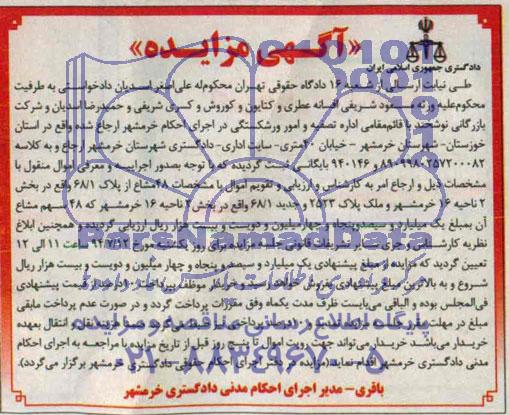 «آگهی مزایده»
دادگستری جمهوری اسلامی ایران
طی نیابت ارسالی از شعبه ۱۶ دادگاه حقوقی تهران محکوم‌له علی‌اصغر اسدیان دادخواستی به طرفیت
محکوم‌علیه ورثه مسعود شریفی افسانه عطری و کتایون و کوروش و کسری شریفی و حمیدرضا اسدیان و شرکت
بازرگانی نوشخند با قائم‌مقامی اداره تصفیه و امور ورشکستگی در اجرای احکام خرمشهر ارجاع شده واقع در استان
خوزستان- شهرستان خرمشهر - خیابان ۴۰متری- سایت اداری- دادگستری شهرستان خرمشهر ارجاع و به کلاسه
۸۹۰۹۹۸۰۲۵۷۲۰۰۰۸۲ و ۹۴۰۱۴۶ بایگانی ثبت گردیده که با توجه بصدور اجراییه و معرفی اموال منقول با
مشخصات ذیل و ارجاع امر به کارشناس و ارزیابی و تقویم اموال با مشخصات ۴۸مشاع از پلاک ۶۸/۱ واقع در بخش
۲ ناحیه ۱۶ خرمشهر و ملک پلاک ۲۵۲۳ و جدید ۶۸/۱ واقع در بخش ۲ ناحیه ۱۶ خرمشهر که ۴۸ سهم مشاع
آن بمبلغ یک میلیارد و سیصد و پنجاه و چهار میلیون و دویست و بیست هزار ریال ارزیابی گردیده و همچنین ابلاغ
نظریه کارشناسی و جری تشریفات قانونی جلسه مزایده برای روز یکشنبه مورخ ۹۴/۷/۱۲ ساعت ۱۱ الی ۱۲
تعیین گردید که مزایده از مبلغ پیشنهادی یک میلیارد و سیصد و پنجاه و چهار میلیون و دویست و بیست هزار ریال
شروع و به بالاترین مبلغ پیشنهادی بفروش خواهد رسید و خریدار موظف بپرداخت ۱۰ درصد از قیمت پیشنهادی
فی‌المجلس بوده و الباقی می‌بایست ظرف مدت یکماه وفق مقررات پرداخت گردد و در صورت عدم پرداخت مابقی
مبلغ در مهلت مقرر جلسه مزایده تجدید ۱۰ درصد پرداختی
خریدار می‌باشد. خریدار می‌تواند جهت رویت اموال تا پنج روز قبل از تاریخ مزایده با مراجعه به اجرای احکام
مدنی دادگستری خرمشهر اقدام نماید(مزایده در دفتر اجرای احکام حقوقی دادگستری خرمشهر برگزار می‌گردد).
باقری- مدیر اجرای احکام مدنی دادگستری خرمشهر
پایگاه اطلاع رسانی مناقصه و مزایده
۰۲۱-۸۸۳۴۹۶۷۰-۵